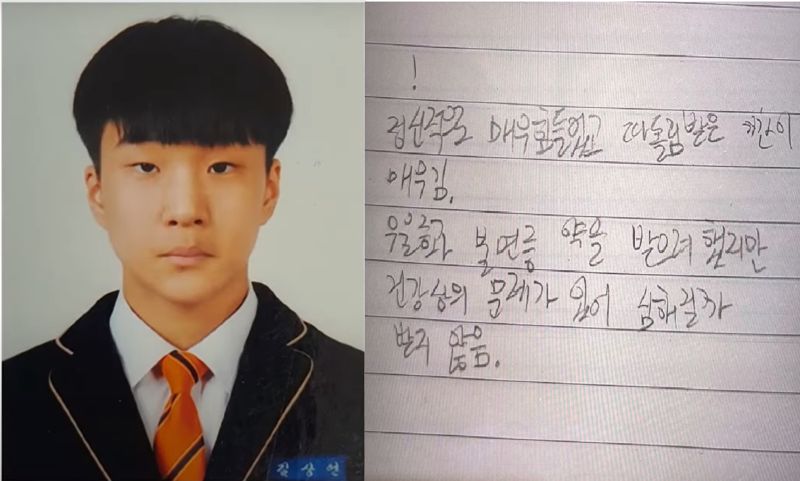 !
정신적으로 매우힘들었고 따돌림받은 기간이
매우김.
우울증과 불면증 약을 받으려 했지만
건강상의 문제가 있어 심해질까
받지 않음.
김상연